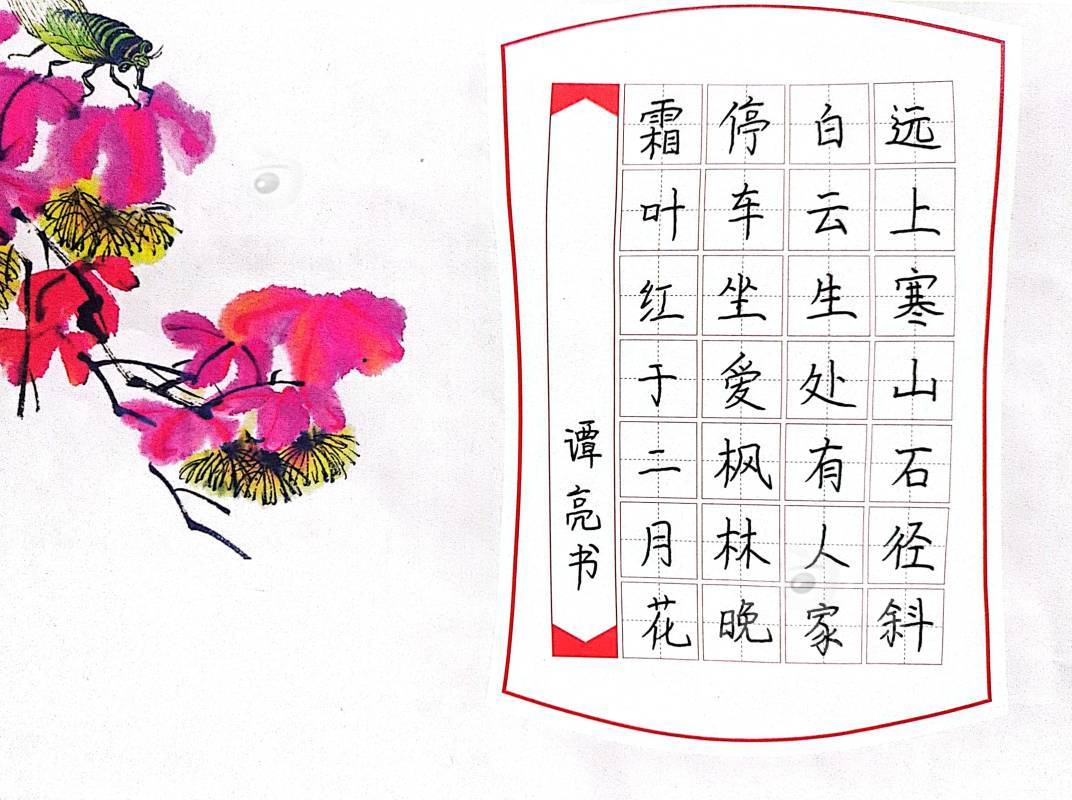 远上寒山石径斜
白云生处有人家
停车坐爱枫林晚
霜叶红于二月花
谭亮书